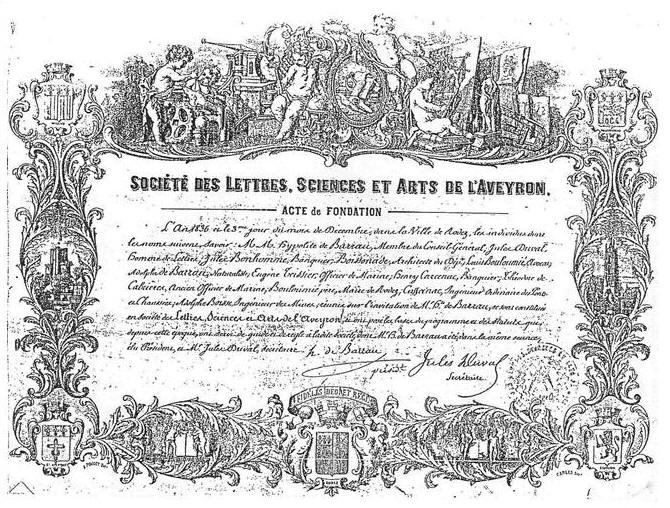 SOCIÉTÉ DES LETTRES, SCIENCES ET ARTS DE L'AVEYRON.
ACTE de FONDATION
L'An 1836 et le 3me jour du mois de Décembre, dans la Ville de Rodez, les individus dont
les noms suivent, savoir: M.M. Hyppolite de Barrau, Membre du Conseil Général, Jules Duval,
homme de Lettres, Jules Bonhomme, Banquier, Boissonade, Architecte du Dépt, Louis Avocat,
Adolphe de Barrau, Naturaliste, Eugène Teissier, Officier de Marine, Henry Carcenac, Banquier, Théodore de
Cabrières, Ancien Officier de Marine, père, Maire de Rodez, Ingénieur Ordinaire des Ponts et
Chaussées, Adolphe Boisse, Ingénieur des Mines, réunis sur l'invitation de Mr. de Barrau, se sont constitués
en Société des Lettres, Sciences et Arts de l'Aveyron, les bases du programme et des Statuts qui,
depuis cette époque, ont de guide et de règle à ladite Société, dont Mr. de Barrau a été, dans la même séance,
élu Président, et Mr. Jules Duval, Secrétaire.
h. de Barrau
présdt
Jules Duval
Secrétaire.
FIDELIS DEO ET REGI
RODEZ